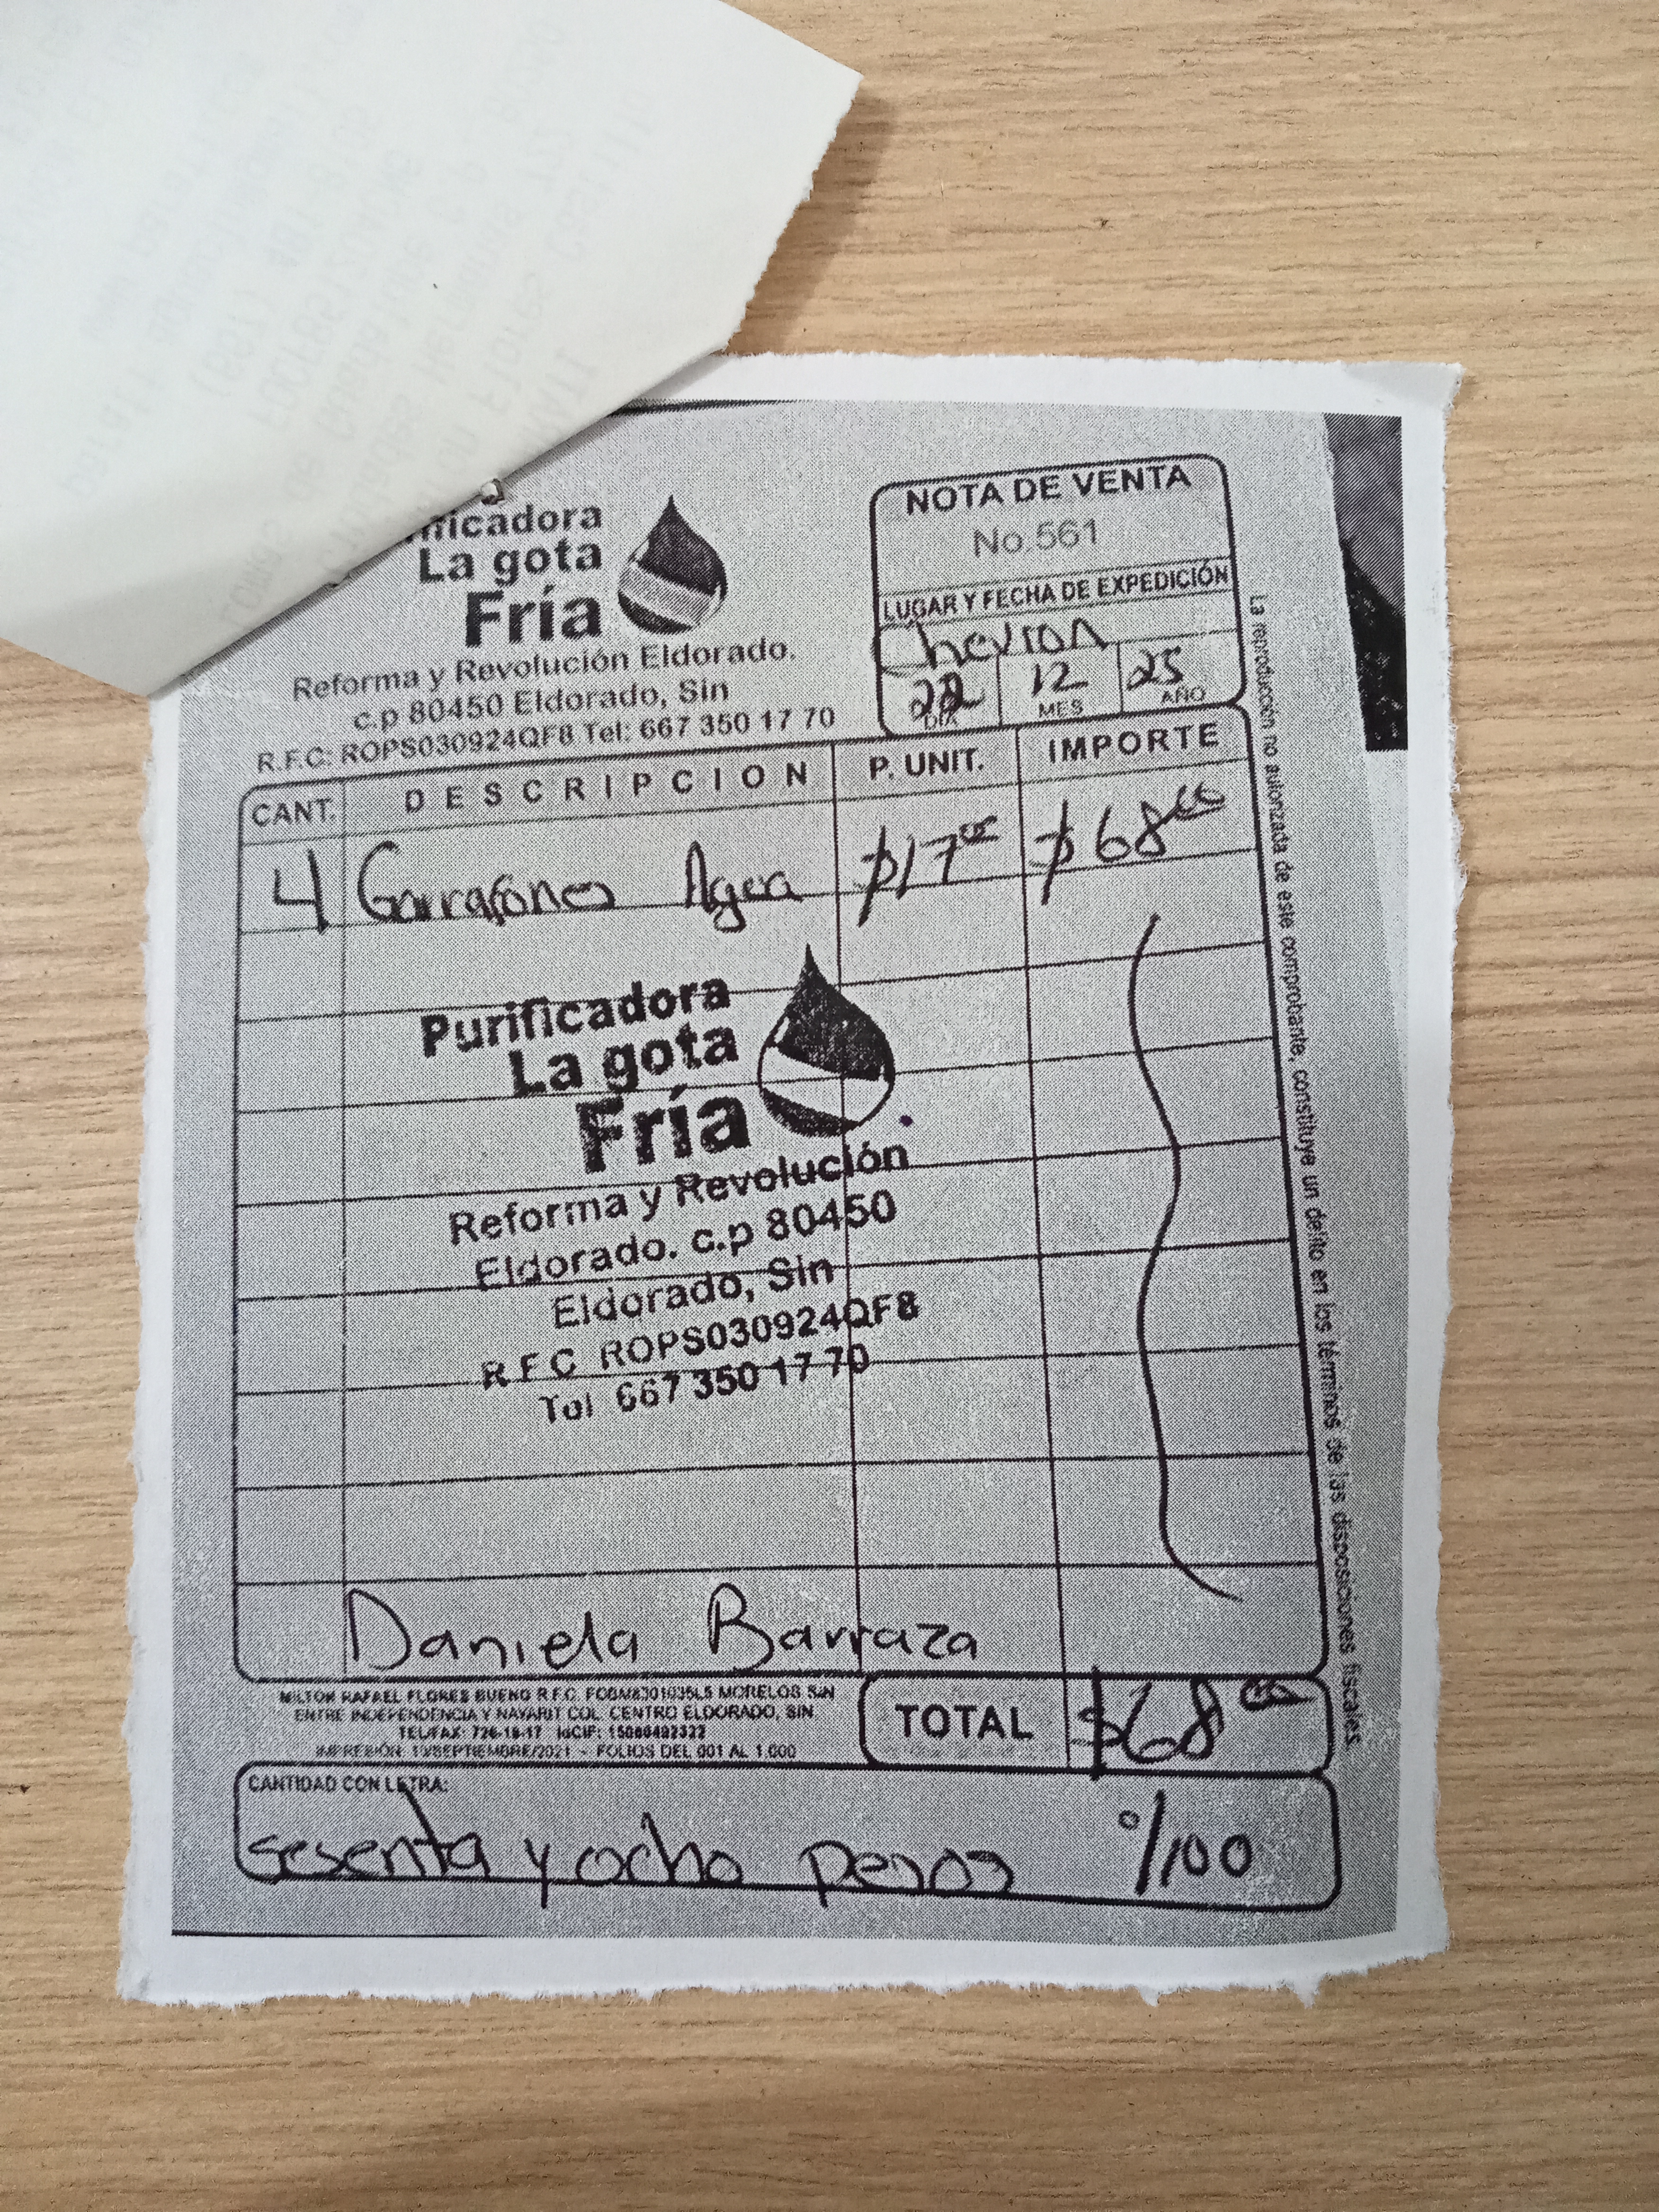 La gota
Fría
Reforma y Revolución Eldorado.
c.p 80450 Eldorado, Sin
R.F.C: ROPS030924QF8 Tel: 667 350 17 70
NOTA DE VENTA
No.561
LUGAR Y FECHA DE EXPEDICIÓN
Chevron
22 12 25
DIA MES AÑO
CANT. DESCRIPCION P. UNIT. IMPORTE
4 Garrafones Agua $17.00 $68.00
Purificadora
La gota
Fría
Reforma y Revolución
Eldorado. c.p 80450
Eldorado, Sin
R F C ROPS030924QF8
Tel 667 350 17 70
Daniela Barraza
MILTON RAFAEL FLORES BUENO R.F.C. MORELOS S/N
ENTRE INDEPENDENCIA Y NAYARIT COL. CENTRO ELDORADO, SIN.
TEL/FAX: 726-18-17 IdCIF:
IMPRESIÓN: SEPTIEMBRE/2021 - FOLIOS DEL 001 AL 1,000
TOTAL $68.00
CANTIDAD CON LETRA:
sesenta y ocho pesos %100
La reproducción no autorizada de este comprobante, constituye un delito en los términos de las disposiciones fiscales.